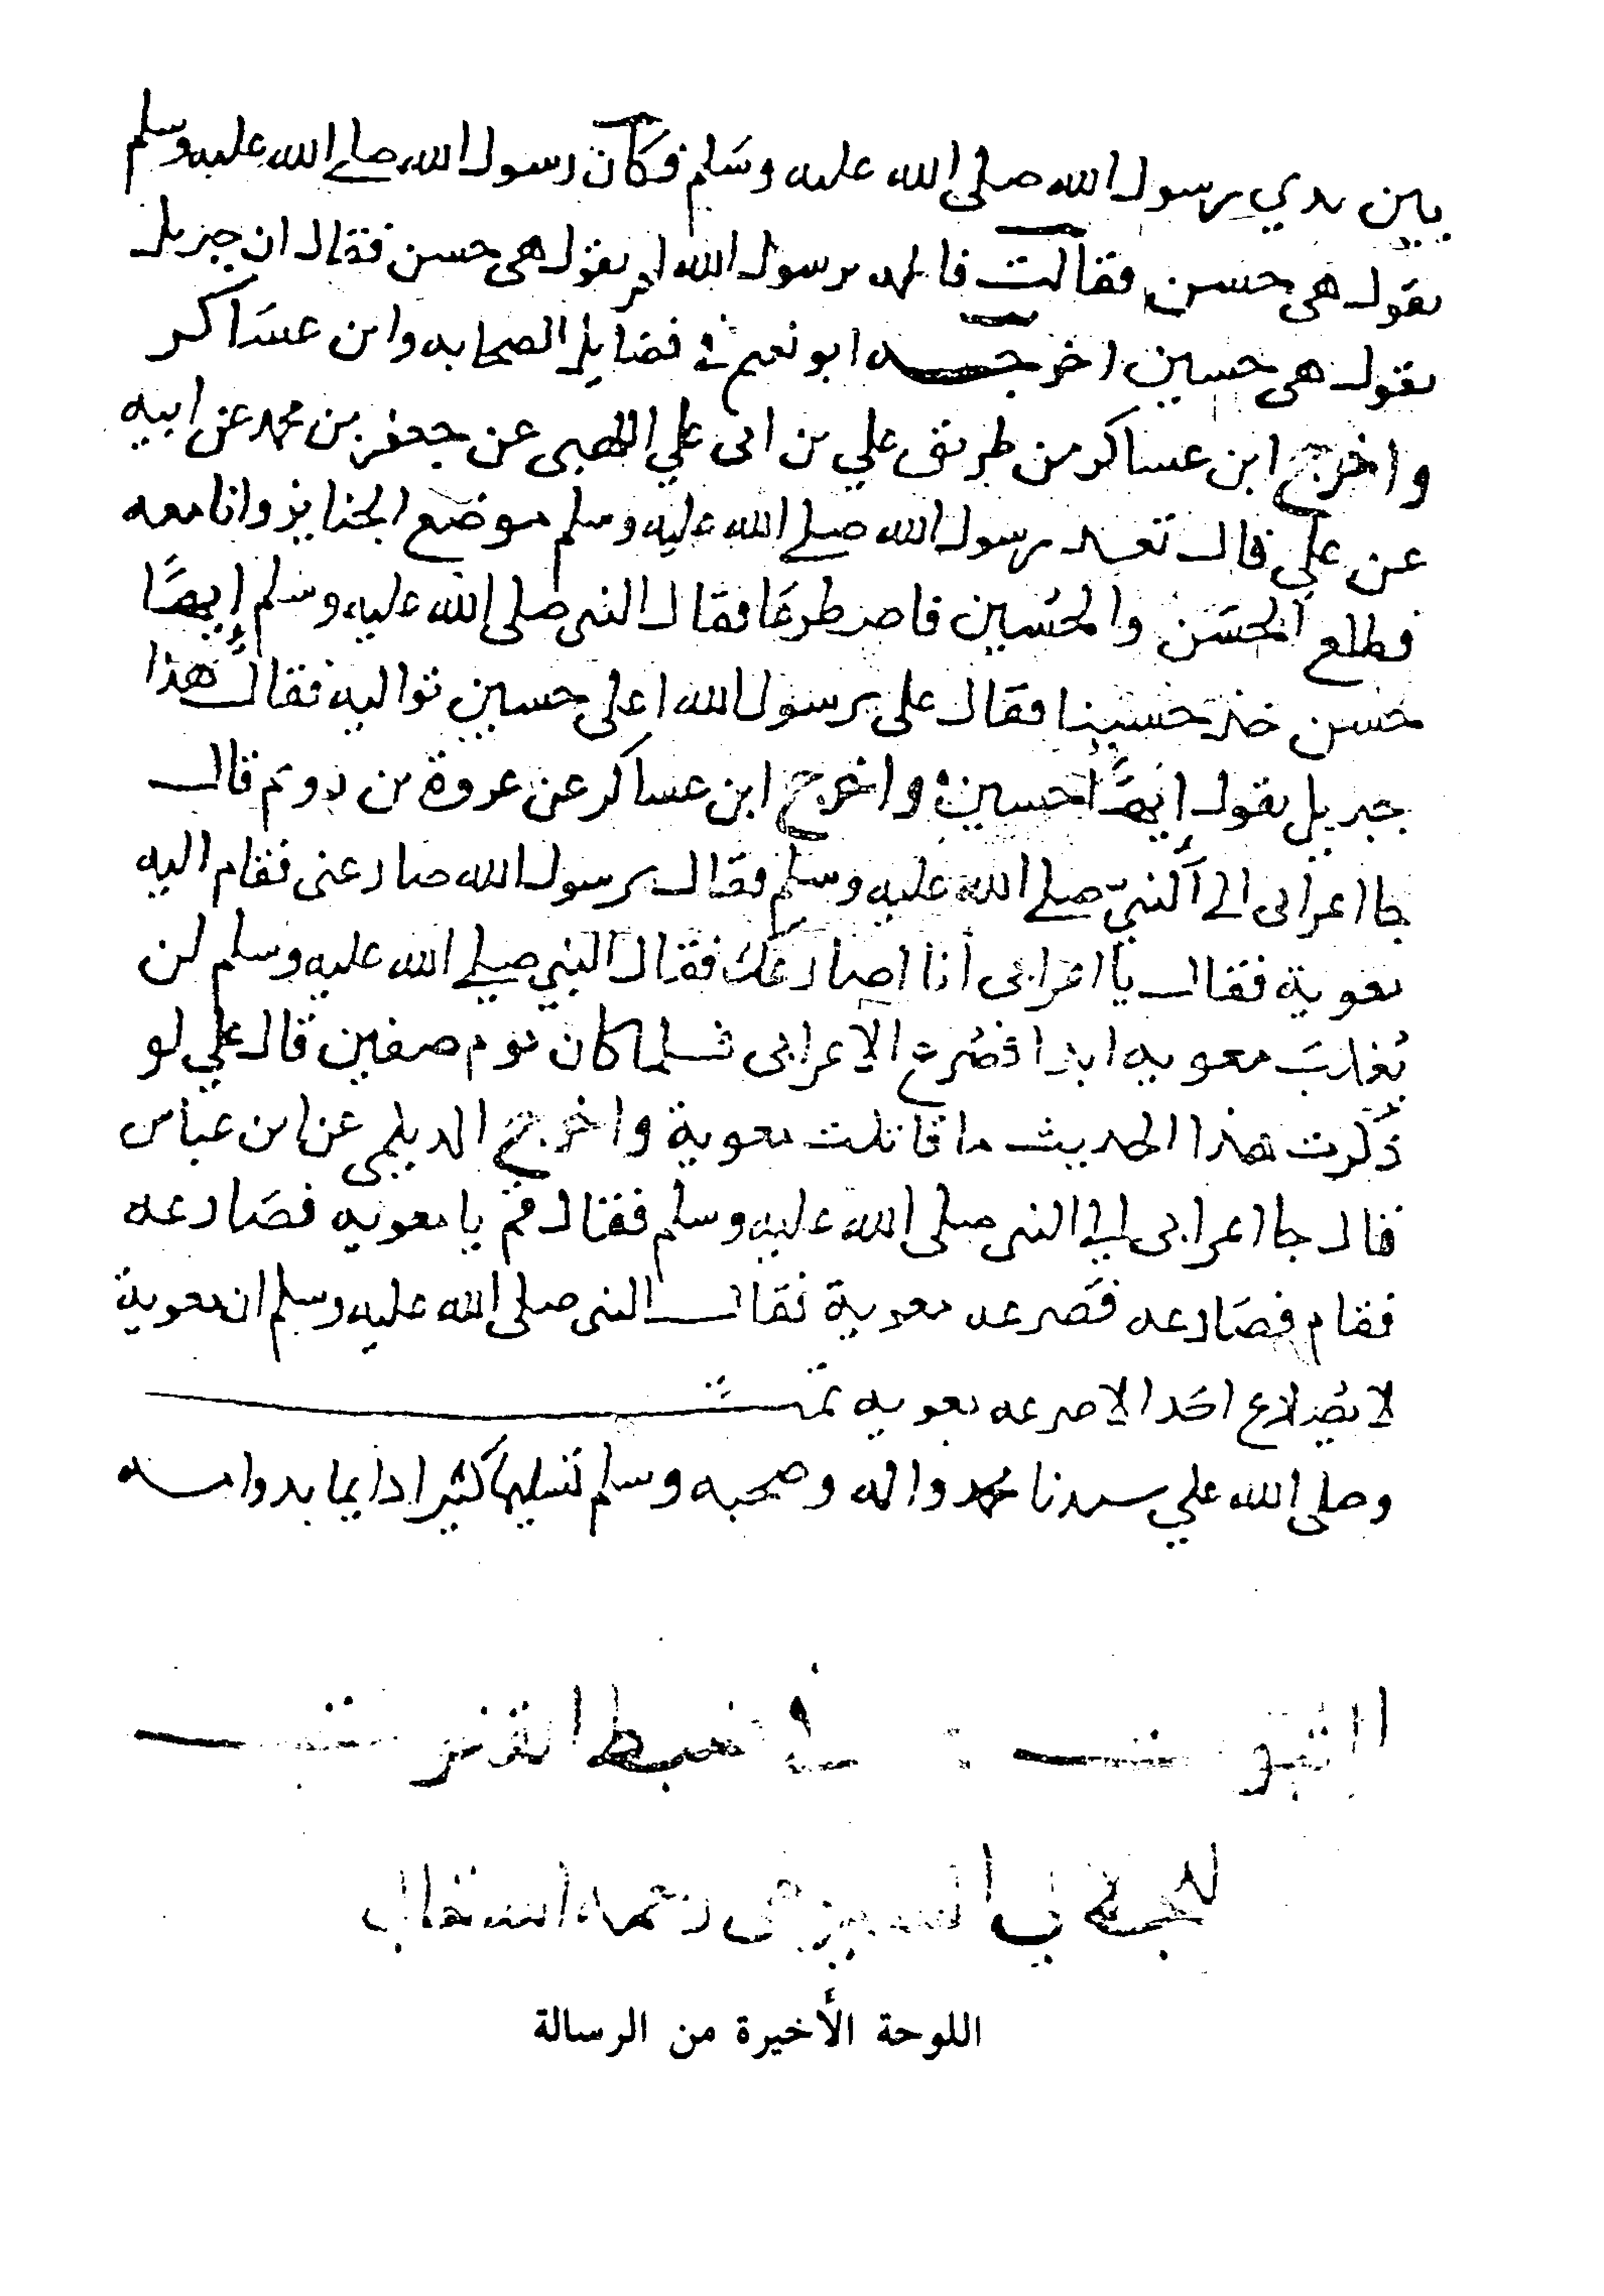 بين يدي رسول الله صلى الله عليه وسلم فكان رسول الله صلى الله عليه وسلم
يقول هي حسن فقالت فاطمه يرسول الله لم يقول هي حسن فقال ان جبريل
يقول هي حسين اخرجه ابو نعيم في فضايل الصحابه وابن عساكر
واخرج ابن عساكر من طريق علي بن ابي علي اللهبي عن جعفر بن محمد عن ابيه
عن علي قال قعد رسول الله صلى الله عليه وسلم موضع الجنايز وانا معه
فطلع الحسن والحسين فاصطرعا فقال النبي صلى الله عليه وسلم إيهًا
حسن خذ حسينا فقال علي يرسول الله اعلى حسين تواليه فقال هذا
جبريل يقول إيهًا حسين واخرج ابن عساكر عن عروة بن رويم قال
جا اعرابى الى النبيّ صلى الله عليه وسلم فقال يرسول الله صارعني فقام اليه
معوية فقال يا اعرابى أنا اصارعك فقال النبي صلى الله عليه وسلم لن
يُغلبَ معويه ابدا فصُرع الاعرابى فلما كان يوم صفين قال علي لو
ذكرت هذا الحديث ما قاتلت معوية واخرج الديلمى عن ابن عباس
قال جا اعرابى الى النبى صلى الله عليه وسلم فقال قم يا معويه فصَارعه
فقام فصَارعه فصَرعه معوية فقال النبى صلى الله عليه وسلم ان معوية
لا يصُارع احَدا الا صرعه معويه تمت
وصلى الله علي سيدنا محمد واله وصحبه وسلم تسليما كثيرا دايما بدوامه
الثبوت في ضبط القنوت
للجلال السيوطى رحمه الله تعالى
اللوحة الأخيرة من الرسالة